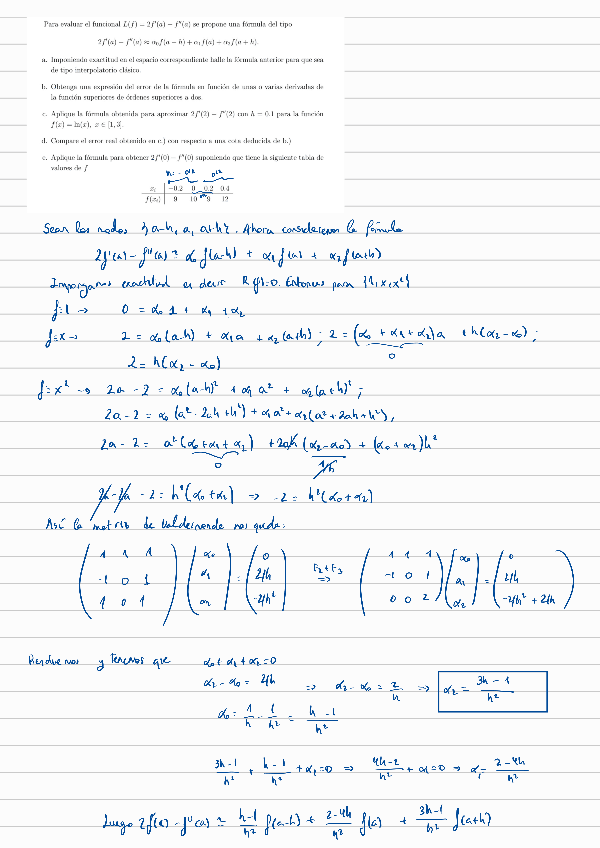 Para evaluar el funcional L(f) = 2f'(a) − f''(a) se propone una fórmula del tipo
2f'(a) − f''(a) ≈ α₀f(a − h) + α₁f(a) + α₂f(a + h).
a. Imponiendo exactitud en el espacio correspondiente halle la fórmula anterior para que sea
de tipo interpolatorio clásico.
b. Obtenga una expresión del error de la fórmula en función de unas o varias derivadas de
la función superiores de órdenes superiores a dos.
c. Aplique la fórmula obtenida para aproximar 2f'(2) − f''(2) con h = 0.1 para la función
f(x) = ln(x), x ∈ [1, 3].
d. Compare el error real obtenido en c.) con respecto a una cota deducida de b.)
e. Aplique la fórmula para obtener 2f'(0) − f''(0) suponiendo que tiene la siguiente tabla de
valores de f
xᵢ | −0.2 0 0.2 0.4
f(xᵢ) | 9 10 9 12
Sean los nodos {a-h, a, a+h}. Ahora consideremos la fórmula
2f'(a) - f''(a) ≈ α₀ f(a-h) + α₁ f(a) + α₂ f(a+h)
Impongamos exactitud es decir R(f)=0. Entonces para {1, x, x²}
f=1 → 0 = α₀ 1 + α₁ + α₂
f=x → 2 = α₀(a-h) + α₁a + α₂(a+h) ; 2 = (α₀ + α₁ + α₂)a + h(α₂-α₀) ;
0
2 = h(α₂ - α₀)
f=x² → 2a - 2 = α₀(a-h)² + α₁ a² + α₂(a+h)² ;
2a - 2 = α₀ (a² - 2ah + h²) + α₁ a² + α₂(a² + 2ah + h²),
2a - 2 = a²(α₀+α₁+α₂) + 2ah (α₂-α₀) + (α₀ + α₂)h²
0 2/h
- 2 = h²(α₀+α₂) → -2 = h²(α₀+α₂)
Así la matriz de Vandermonde nos queda:
( 1 1 1 ) ( α₀ ) ( 0 ) F₂+F₃ ( 1 1 1 ) ( α₀ ) ( 0 )
( -1 0 1 ) ( α₁ ) = ( 2/h ) ⇒ ( -1 0 1 ) ( α₁ ) = ( 2/h )
( 1 0 1 ) ( α₂ ) ( -2/h² ) ( 0 0 2 ) ( α₂ ) ( -2/h² + 2/h )
y tenemos que α₀ + α₁ + α₂ = 0
α₂ - α₀ = 2/h ⇒ α₂ - α₀ = 2/h ⇒ α₂ = (3h - 1)/h²
α₀ = 1/h - 1/h² = (h - 1)/h²
(3h-1)/h² + (h-1)/h² + α₁ = 0 ⇒ (4h-2)/h² + α₁ = 0 → α₁ = (2-4h)/h²
Luego 2f'(a) - f''(a) ≈ (h-1)/h² f(a-h) + (2-4h)/h² f(a) + (3h-1)/h² f(a+h)